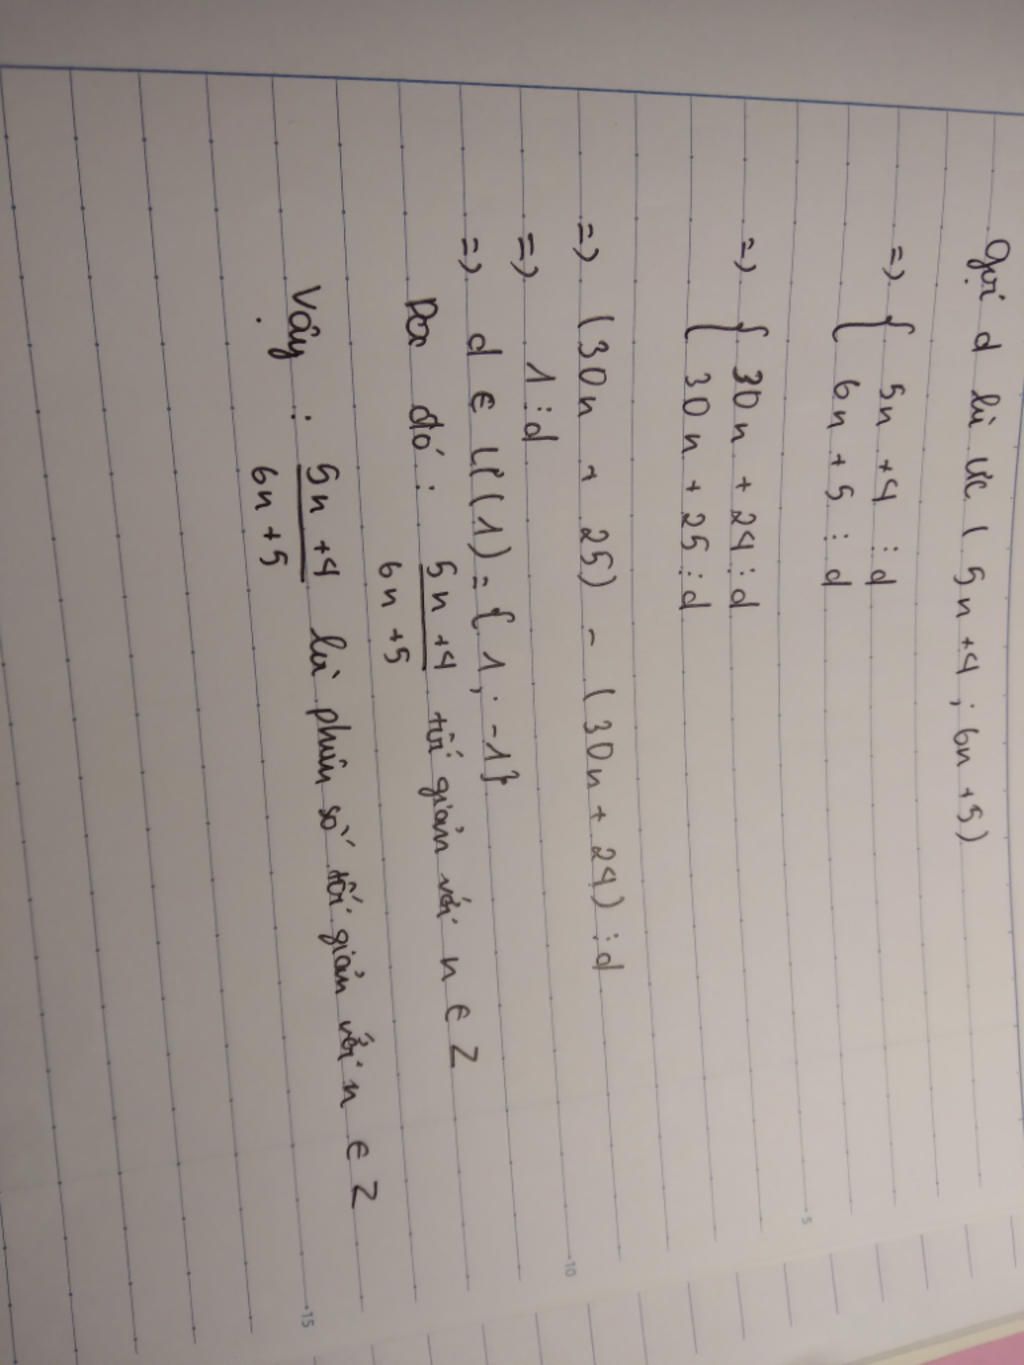 Gọi d là ƯC ( 5n +4 ; 6n +5)
=> { 5n +4 ⋮ d
6n + 5 ⋮ d
=> { 30n + 24 ⋮ d
30n + 25 ⋮ d
=> (30n + 25) - (30n + 24) ⋮ d
=> 1 ⋮ d
=> d ∈ Ư(1) = { 1 ; -1}
Do đó : 5n +4 / 6n +5 tối giản với n ∈ Z
Vậy : 5n +4 / 6n +5 là phân số tối giản với n ∈ Z
5
10
15